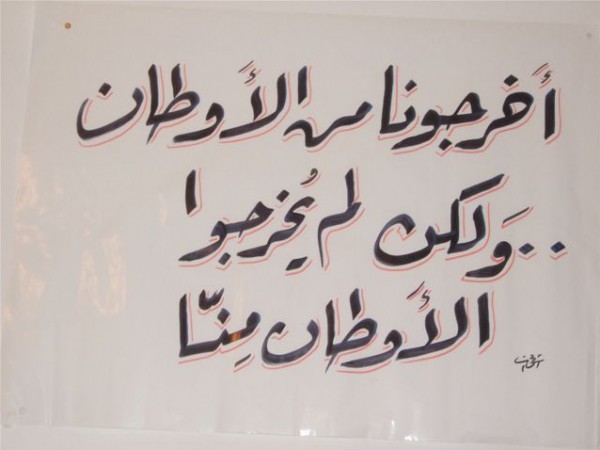 أخرجونا من الأوطان
..وَلكن لم يُخرجوا
الأوطان مِنّا